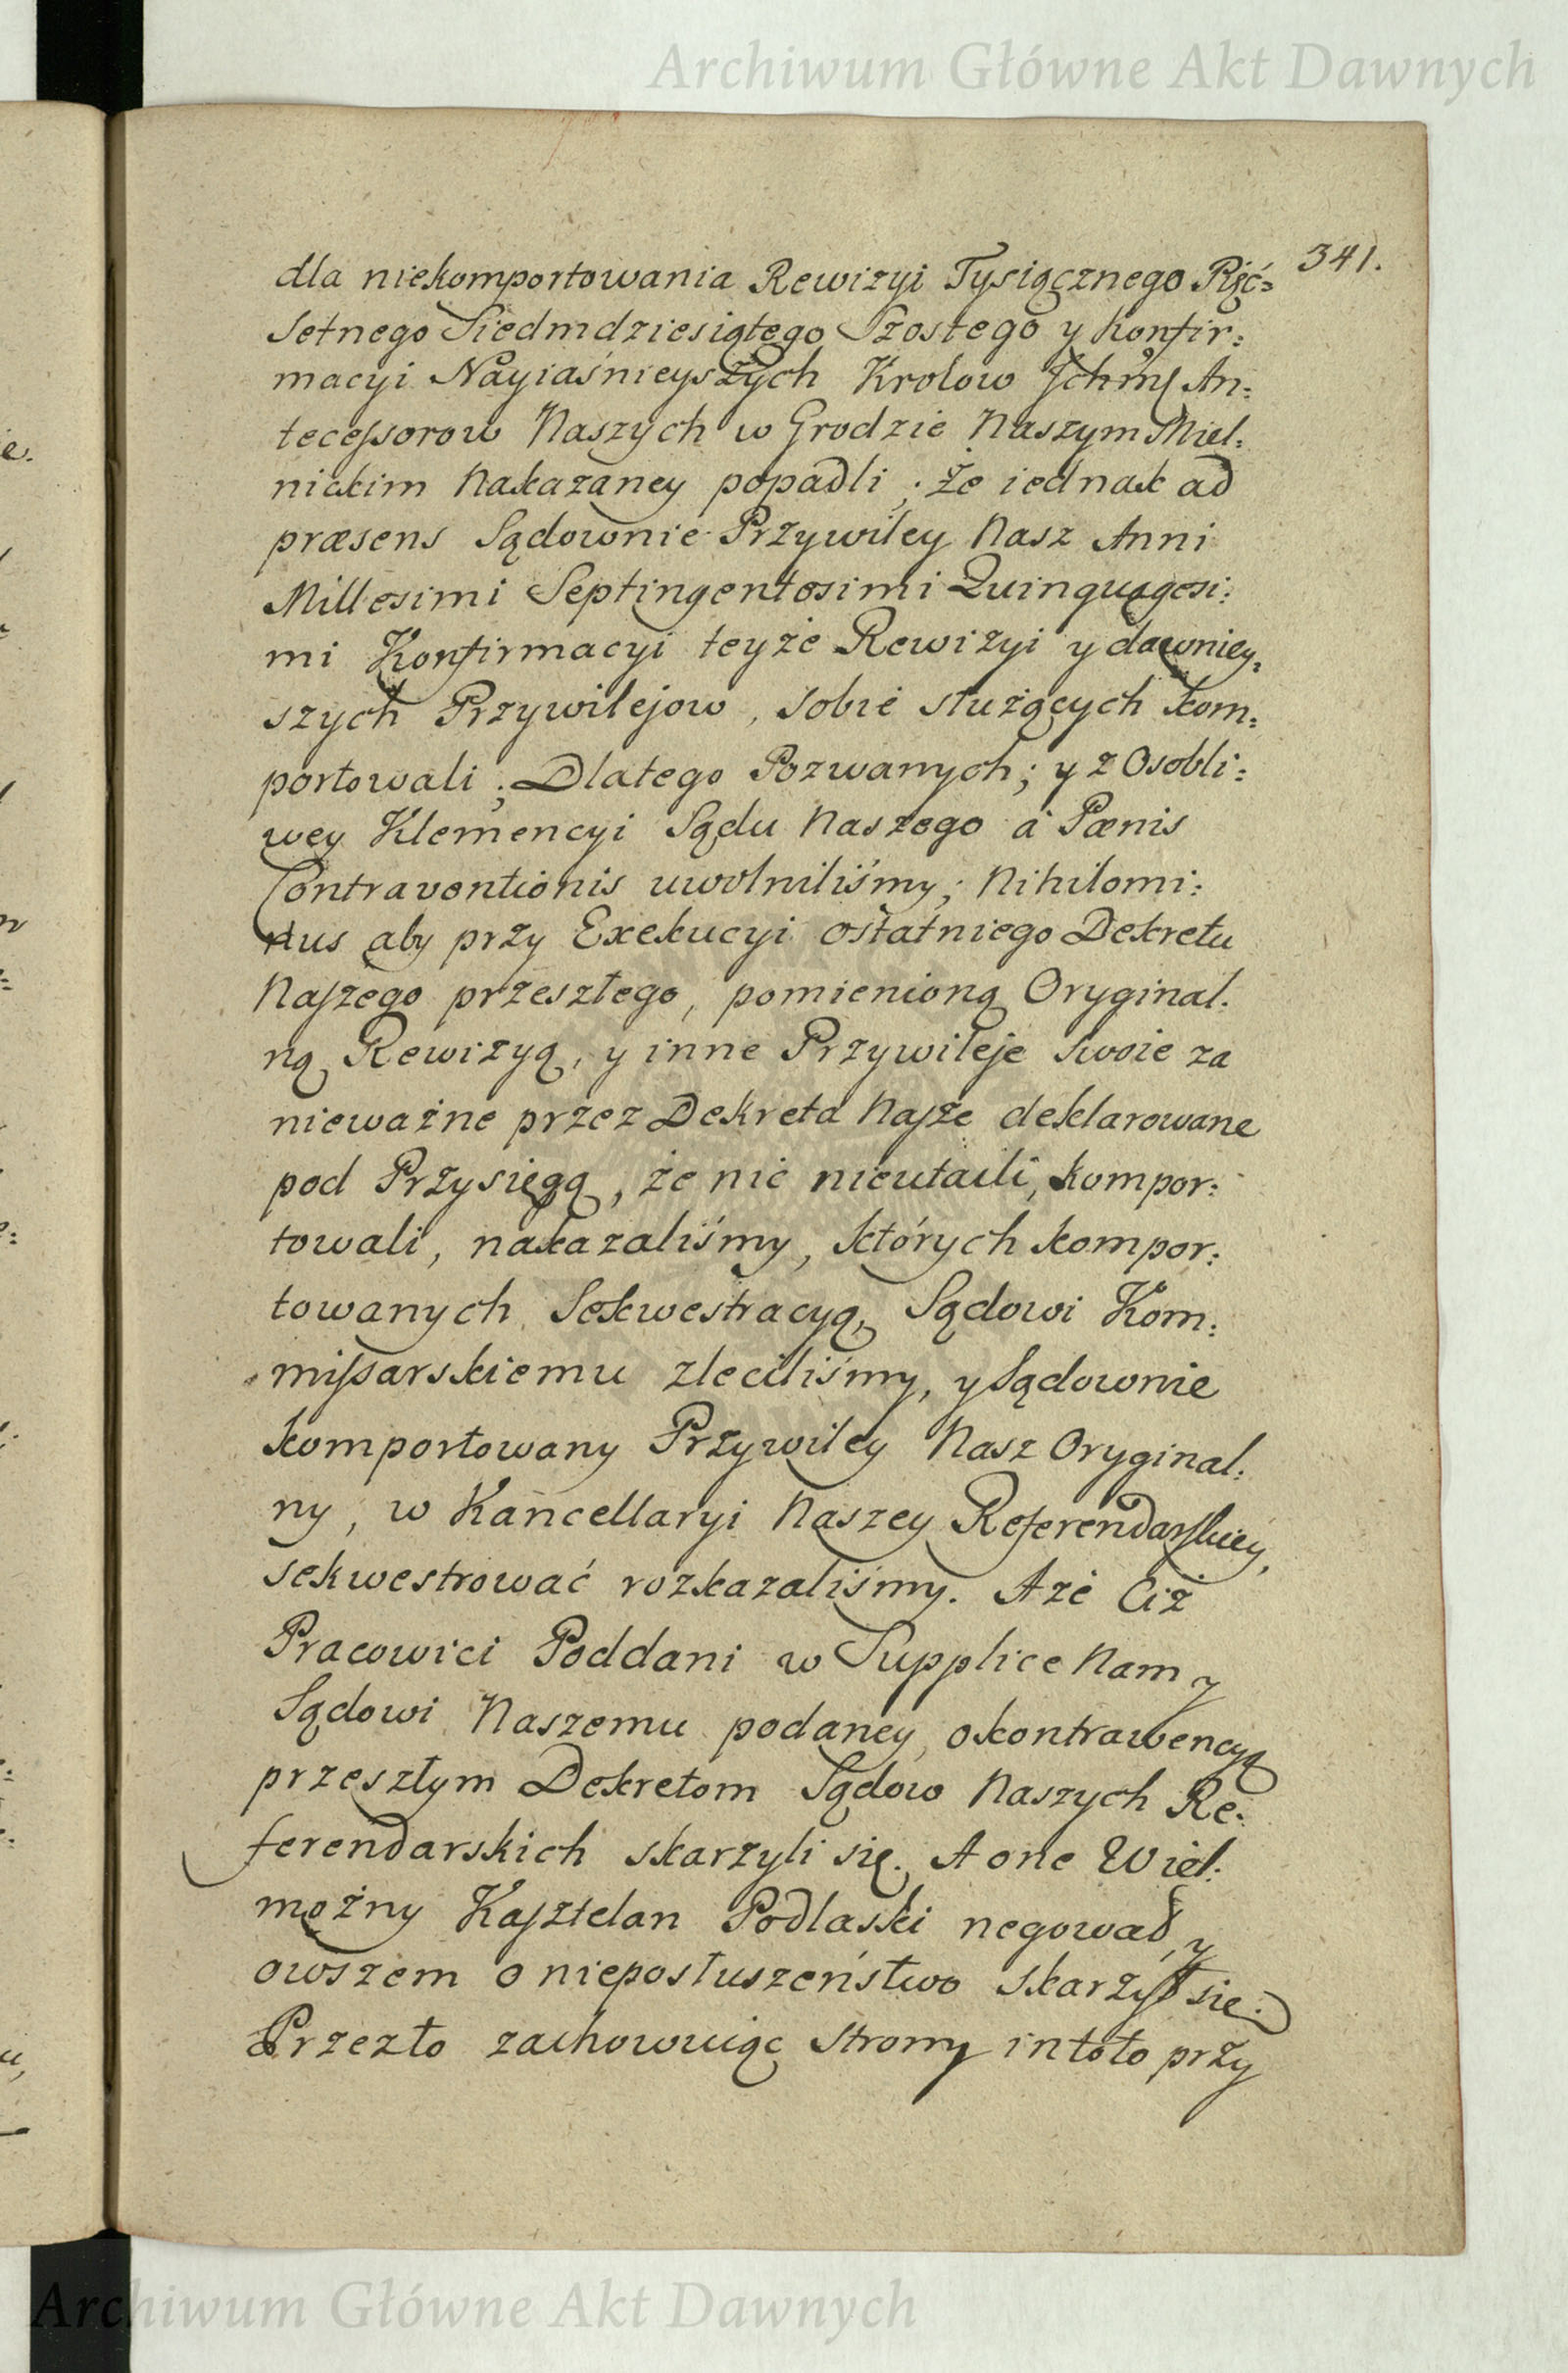 Archiwum Główne Akt Dawnych
341.
dla niekomportowania Rewizyi Tysiącznego Pięć=
Setnego Siedmdziesiątego Szostego y Konfir:
macyi Nayiaśnieyszych Krolow Ichmś An:
tecessorow Naszych w Grodzie Naszym Miel:
nickim Nakazaney popadli; Że iednak ad
præsens Sądownie Przywiley Nasz Anni
Millesimi Septingentesimi Quinquagesi:
mi Konfirmacyi teyże Rewizyi y dawniey:
szych Przywilejow, sobie służących kom:
portowali; Dlatego Pozwanych; y z Osobli:
wey Klemencyi Sądu Naszego à Pænis
Contraventionis uwolniliśmy; Nihilomi:
nus aby przy Exekucyi ostatniego Dekretu
Naszego przeszłego, pomienioną Oryginal:
ną Rewizyą, y inne Przywileje swoie za
nieważne przez Dekreta Nasze deklarowane
pod Przysięgą, że nic nieutaili, kompor:
towali, nakazaliśmy, których kompor:
towanych Sekwestracyą, Sądowi Kom:
missarskiemu zleciliśmy, y Sądownie
komportowany Przywiley Nasz Oryginal:
ny, w Kancellaryi Naszey Referendarskiey,
sekwestrować rozkazaliśmy. A że Ciż
Pracowici Poddani w Supplice Nam y
Sądowi Naszemu podaney, o kontrawencyą
przeszłym Dekretom Sądow Naszych Re:
ferendarskich skarżyli się. A one Wiel:
możny Kasztelan Podlaski negował, y
owszem o nieposłuszeństwo skarżył się:
Przezto zachowuiąc strony in toto przy
Archiwum Główne Akt Dawnych